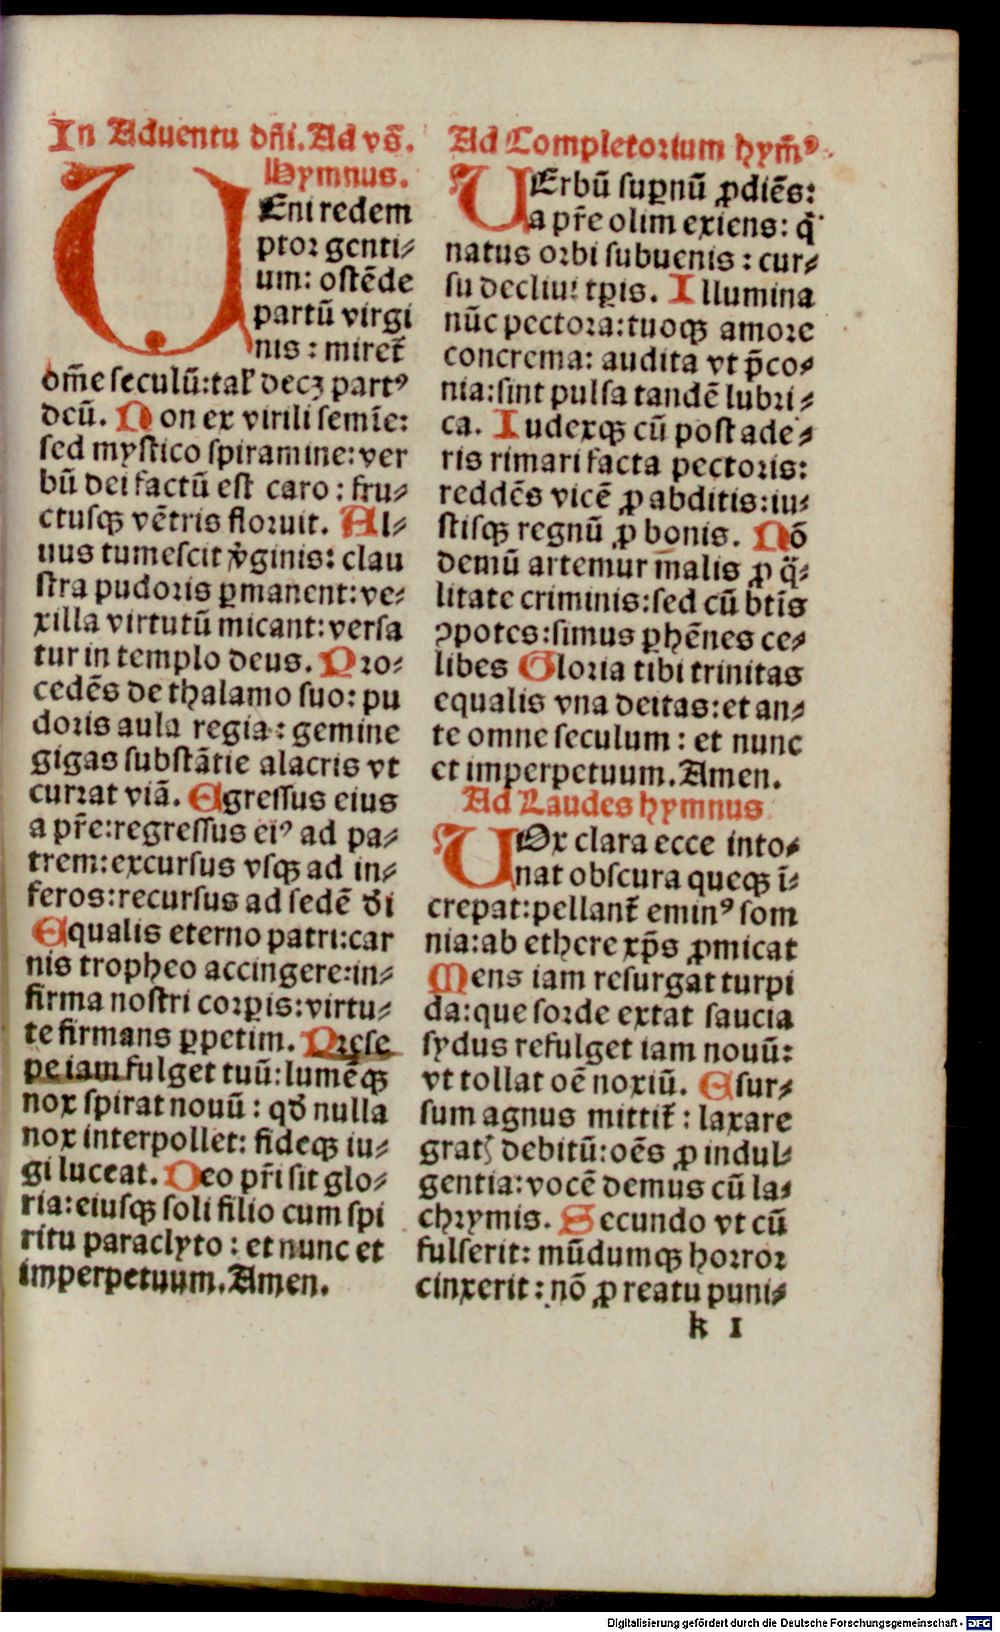 In Aduentu dn̄i. Ad vs̄.
Hymnus.
VEni redem
ptor genti⸗
um: ostēde
partū virgi
nis : miret᷑
om̄e seculū: tal' decꝫ partꝰ
dcū. Non ex virili semīe:
sed mystico spiramine: ver
bū dei factū est caro : fru⸗
ctusqꝫ vētris floruit. Al⸗
uus tumescit v̓ginis: clau
stra pudoris ꝑmanent: ve⸗
xilla virtutū micant: versa
tur in templo deus. Pro⸗
cedēs de thalamo suo: pu
doris aula regia : gemine
gigas substātie alacris vt
currat viā. Egressus eius
a pr̄e: regressus eiꝰ ad pa⸗
trem: excursus vsqꝫ ad in⸗
feros: recursus ad sedē dei
Equalis eterno patri: car
nis tropheo accingere: in⸗
firma nostri corꝑis: virtu⸗
te firmans ꝑpetim. Prese
pe iam fulget tuū: lumēqꝫ
nox spirat nouū : qd̓ nulla
nox interpollet: fideqꝫ iu⸗
gi luceat. Deo pr̄i sit glo⸗
ria: eiusqꝫ soli filio cum spi
ritu paraclyto : et nunc et
imperpetuum. Amen.
Ad Completorium hym̄ꝰ.
VErbū suꝑnū ꝓdiēs:
a pr̄e olim exiens: q̄
natus orbi subuenis : cur⸗
su decliui tꝑis. Illumina
nūc pectora: tuoqꝫ amore
concrema: audita vt p̄co⸗
nia: sint pulsa tandē lubri⸗
ca. Iudexqꝫ cū post ade⸗
ris rimari facta pectoris:
reddēs vicē ꝓ abditis: iu⸗
stisqꝫ regnū ꝓ bonis. Nō
demū artemur malis ꝓ q̄⸗
litate criminis: sed cū btīs
ꝯpotes: simus ꝑhēnes ce⸗
libes Gloria tibi trinitas
equalis vna deitas: et an⸗
te omne seculum : et nunc
et imperpetuum. Amen.
Ad Laudes hymnus.
VOx clara ecce into⸗
nat obscura queqꝫ ī⸗
crepat: pellant᷑ eminꝰ som
nia: ab ethere xp̄s ꝓmicat
Mens iam resurgat turpi
da: que sorde extat saucia
sydus refulget iam nouū:
vt tollat oē noxiū. Esur⸗
sum agnus mittit᷑ : laxare
gratꝭ debitū: oēs ꝓ indul⸗
gentia: vocē demus cū la⸗
chrymis. Secundo vt cū
fulserit: mūdumqꝫ horror
cinxerit : nō ꝓ reatu puni⸗
k 1
Digitalisierung gefördert durch die Deutsche Forschungsgemeinschaft - DFG